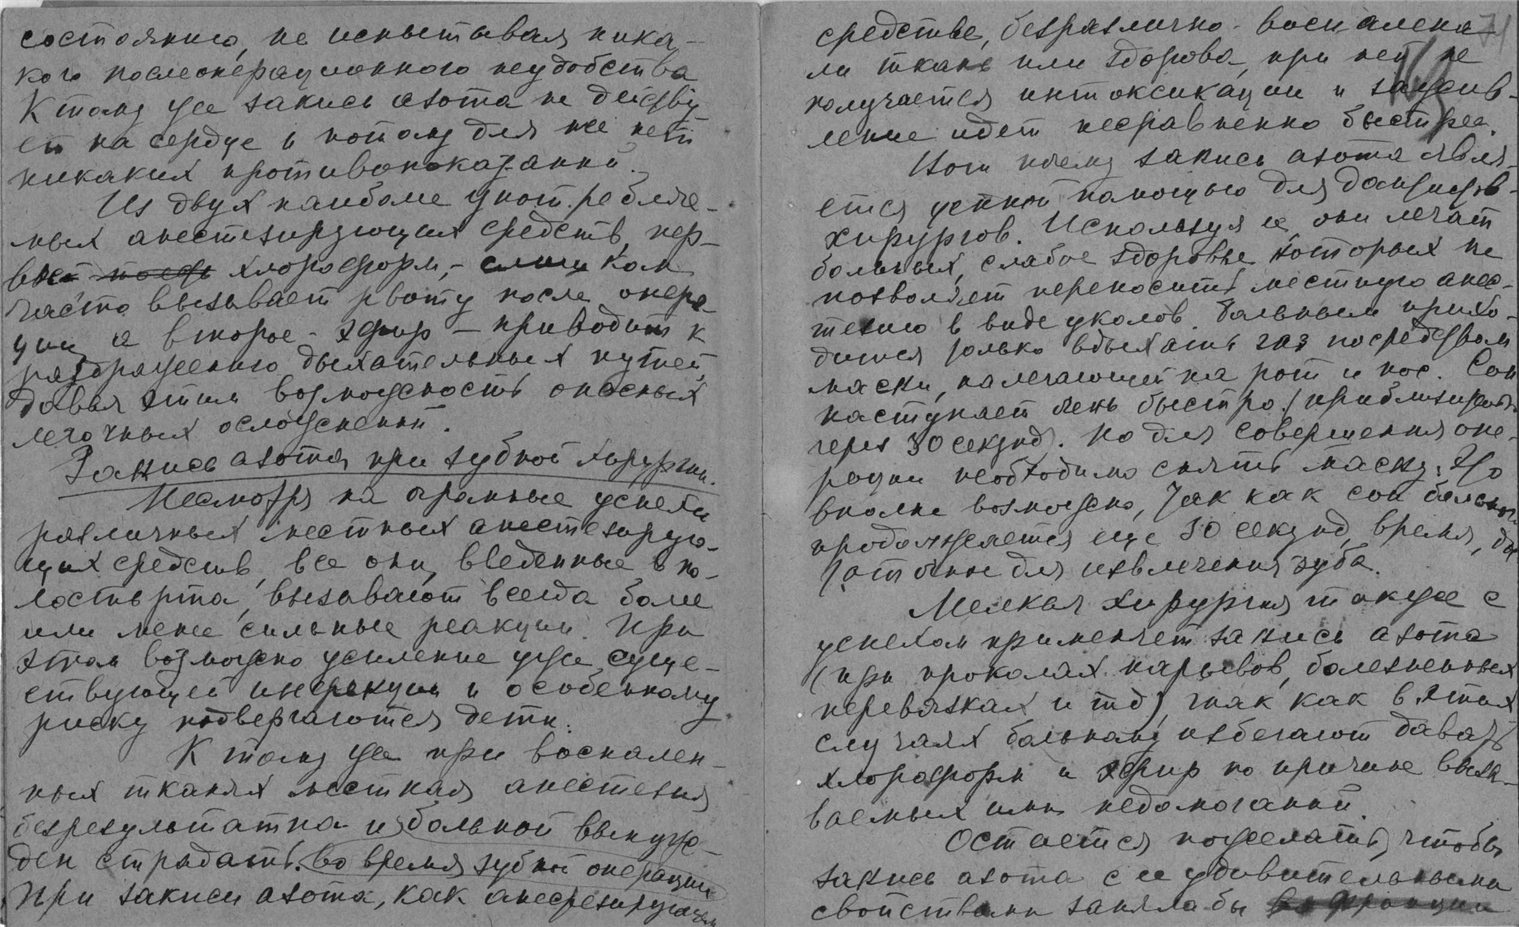 состоянию, не испытывая ника-
кого послеоперационного неудобства
К тому же закись азота не действу
ет на сердце и потому для нее нет
никаких противопоказаний.
Из двух наиболе употребляе-
мых анестезирующих средств, пер-
вое хлороформ, – слишком
часто вызывает рвоту после опера-
ции, а второе – эфир – приводит к
раздражению дыхательных путей,
давая этим возможность опасных
легочных осложнений.
Закись азота при зубной хирургии.
Несмотря на огромные успехи
различных местных анестезирую-
щих средств, все они, введенные в по-
лость рта, вызывают всегда боле
или мене сильные реакции. При
этом возможно усиление уже суще-
ствующей инфекции и особенному
риску подвергаются дети.
К тому же при воспален-
ных тканях местная анестезия
безрезультатна и больной вынуж-
ден страдать во время зубной операции
При закиси азота, как анестезирующем
средстве, безразлично – воспалена 71
ли ткань или здорова, при ней не
получается интоксикации и заживв-
ление идет несравненно быстрее.
Вот почему закись азота явля-
ется ценной помощью для дантистов-
хирургов. Используя ее, они лечат
больных, слабое здоровье которых не
позволяет переносить местную анес-
тезию в виде уколов. Больным прихо-
дится только вдыхать газ посредством
маски, налегающей на рот и нос. Сон
наступает очень быстро (приблизительно
через 30 секунд). Но для совершения опе-
рации необходимо снять маску. Это
вполне возможно, так как сон больного
продолжается еще 30 секунд, время, дос
таточное для извлечения зуба.
Мелкая хирургия также с
успехом применяет закись азота
(при проколах нарывов, болезненных
перевязках и т.д.), так как в этих
случаях больному избегают давать
хлороформ и эфир по причине вызы-
ваемых ими недомоганий.
Остается пожелать, чтобы
закись азота с ее удивительными
свойствами заняла бы во Франции